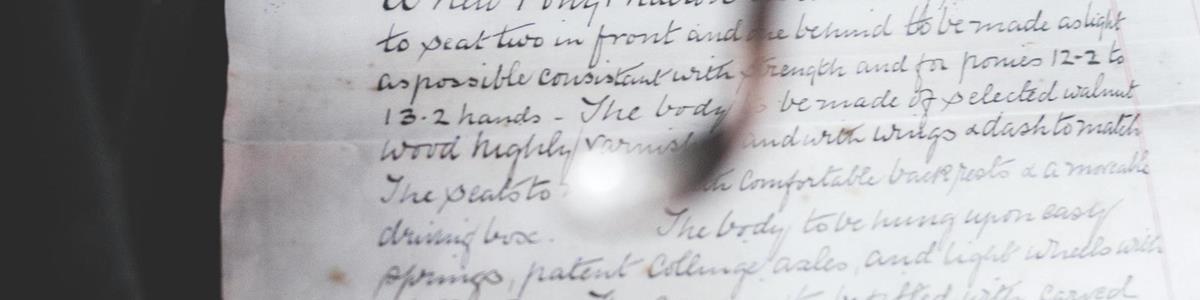 A New Pony
to seat two in front and one behind to be made as light
as possible consistant with strength and for ponies 12-2 to
13.2 hands - The body be made of selected walnut
wood highly varnish and with wings & dash to match
The seats to with comfortable back rests & a moveable
driving box. The body to be hung upon easy
springs, patent Collinge axles, and light wheels with
be fitted with carved